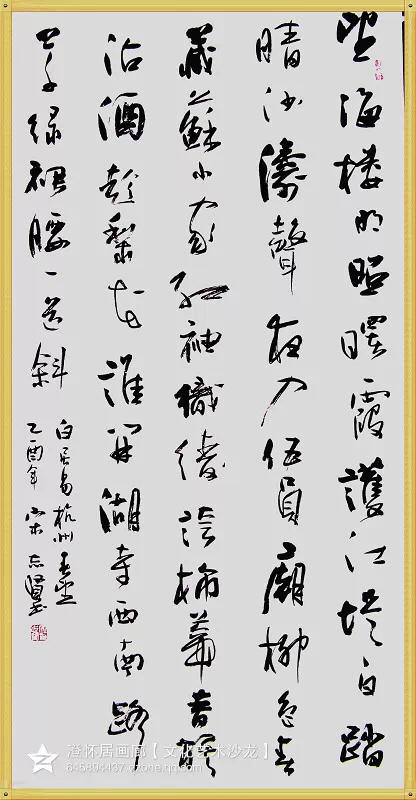 望海楼明照曙霞護江堤白踏
晴沙濤聲夜入伍員廟柳色春
藏蘇小家红袖織绫誇柿蒂青旗
沽酒趁梨花誰開湖寺西南路
草绿裙腰一道斜
白居易杭州春望
乙酉年宋志贤书
澄怀居画廊【文化艺术沙龙】
645894437.qzone.qq.com